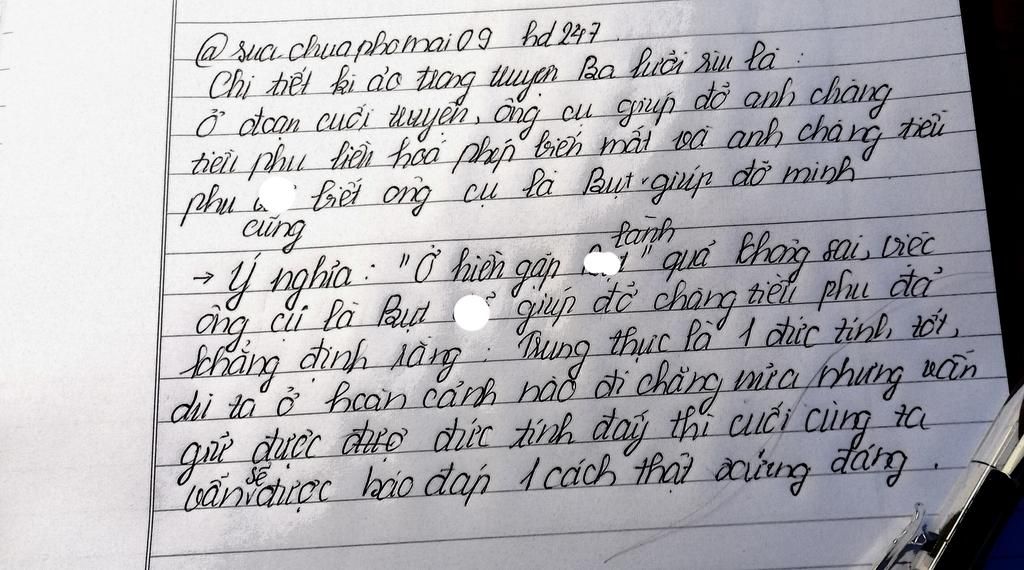 @suachuaphomai09 hd247
Chi tiết kì ảo trong truyện Ba lưỡi rìu là :
Ở đoạn cuối truyện, ông cụ giúp đỡ anh chàng
tiều phu liền hoá phép biến mất và anh chàng tiều
phu biết ông cụ là Bụt giúp đỡ mình
cũng
lành
→ Ý nghĩa : "Ở hiền gặp " quả không sai, việc
ông cụ là Bụt giúp đỡ chàng tiều phu đã
khẳng định rằng : Trung thực là 1 đức tính tốt,
dù ta ở hoàn cảnh nào đi chăng nữa nhưng vẫn
giữ được đức tính đấy thì cuối cùng ta
sẽ
vẫn được báo đáp 1 cách thật xứng đáng .